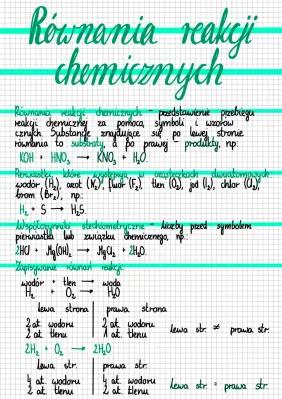 Równania reakcji
chemicznych
Równania reakcji chemicznych - przedstawienie przebiegu
reakcji chemicznej za pomocą symboli i wzorów
cznych. Substancje znajdujące się po lewej stronie
równania to substraty, a po prawej - produkty, np.:
KOH + HNO₃ → KNO₃ + H₂O.
Pierwiastki, które występują w cząsteczkach dwuatomowych:
wodór (H₂), azot (N₂), fluor (F₂), tlen (O₂), jod (I₂), chlor (Cl₂),
brom (Br₂), np.:
H₂ + S → H₂S.
Współczynniki stechiometryczne - liczby przed symbolem
pierwiastka lub związku chemicznego, np.:
2HCl + Mg(OH)₂ → MgCl₂ + 2H₂O.
Zapisywanie równań reakcji:
wodór + tlen → woda
H₂ O₂ → H₂O
lewa strona | prawa strona
2 at. wodoru 2 at. wodoru
2 at. tlenu 1 at. tlenu
lewa str. ≠ prawa str.
2H₂ + O₂ → 2H₂O
lewa str. | prawa str.
4 at. wodoru 4 at. wodoru
2 at. tlenu 2 at. tlenu
lewa str. = prawa str.